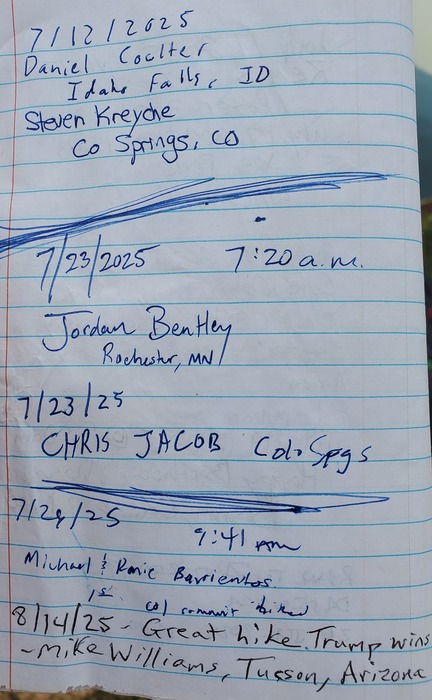 7/12/2025
Daniel Coulter
Idaho Falls, ID
Steven Kreyche
Co Springs, CO
7/23/2025 7:20 a.m.
Jordan Bentley
Rochester, MN
7/23/25
CHRIS JACOB Colo Spgs
9:41 am
Michael & Barrientos
1st co/ summit
8/14/25 - Great hike. Trump wins
-Mike Williams, Tucson, Arizona